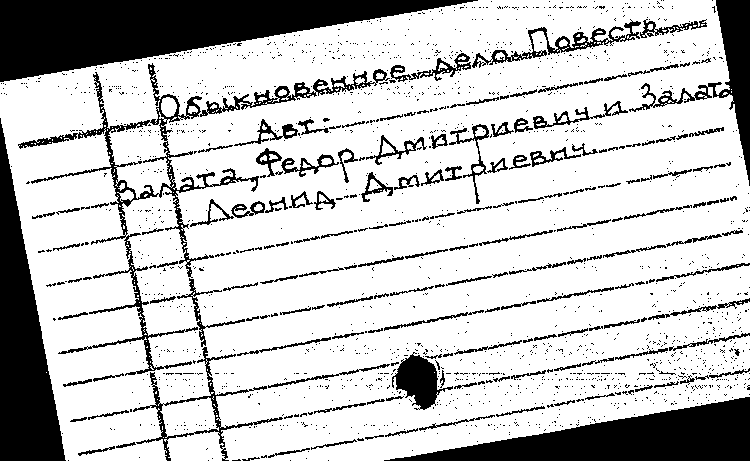 Обыкновенное дело. Повесть
Авт:
Залата, Федор Дмитриевич и Залата,
Леонид Дмитриевич.